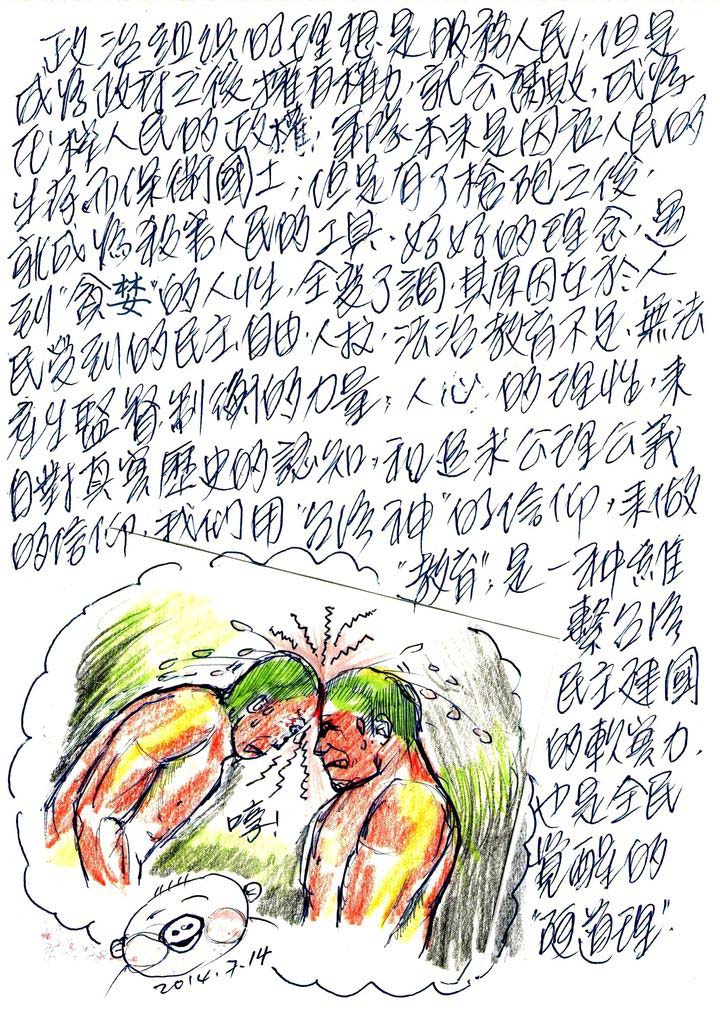 政治組織的理想是服務人民，但是
成為政府之後擁有權力，就会腐敗，成為
代人民的政權，軍隊本來是因為人民的
生存而保衛國土；但是有了槍砲之後，
就成為殺害人民的工具，好好的理念，遇
到"貪婪"的人性，全變了調，其原因在於人
民受到的民主、自由、人权、法治教育不足，無法
產生監督、制衡的力量；人心的理性，來
自對真實歷史的認知，和追求公理公義
的信仰，我們用"台湾神"的信仰，來做
"教育"；是一种維
繫台湾
民主建國
的軟實力，
也是全民
覺醒的
"硬道理"。
哼！
2014.7.14